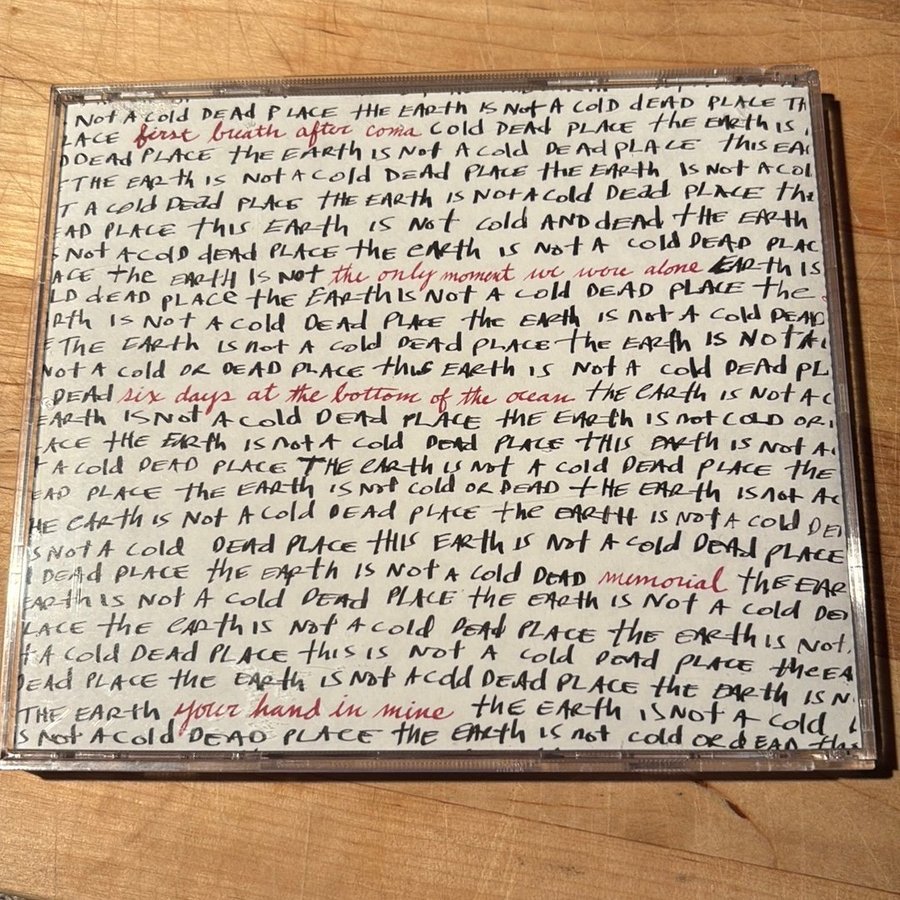 Not A cold DEAD PLACE the EARth IS Not A Cold dEAD PLACE Th
LACE first breath after coma cold DEAD PLACE the EARth IS
DEAD PLACE the EARth IS Not A cold DEAD PLACE this EA
THE EARth IS Not A Cold DEAD PLACE the EARth IS Not A Col
T A cold DEAD PLACE the EARth IS Not A Cold DEAD PLACE the
AD PLACE this EARth IS Not cold AND dead the EARth
Not A cold dead PLACE the earth is Not A cold DEAD PLAC
ACE the EARth IS Not the only moment we were alone EARth IS
LD dEAD PLACE the EARth IS Not A cold DEAD PLACE the
Rth IS Not A cold DEAD PLACE the EARth IS Not A cold DEAD
THE EARth IS not A cold DEAD PLACE the EARth IS Not A
Not A cold OR DEAD PLACE this EARth IS Not A cold DEAD PL
DEAD six days at the bottom of the ocean the eARth IS Not A C
EARth IS Not A cold DEAD PLACE the EARth IS not COLD OR
ACE the EARth IS not A cold DEAD PLACE this EARth IS Not A
t A cold DEAD PLACE THE eARth IS Not A cold DEAD PLACE the
EAD PLACE the EARth IS Not cold OR DEAD tHE EARth IS not A C
HE eARth IS Not A cold DEAD PLACE the EARtH IS Not A cold DE
S Not A cold DEAD PLACE tHIS EARth IS Not A cold DEAD PLACE
DEAD PLACE the EARth IS Not A cold DEAD memorial the EAR
EARth IS Not A cold DEAD PLACE the EARth IS Not A cold DE
LACE the EARth IS Not A cold DEAD PLACE the EARth IS Not
t A cold DEAD PLACE this is Not A cold DEAD PLACE the EA
DEAD PLACE the EARth IS Not A cold DEAD PLACE the EARth IS N
THE EARth your hand in mine the EARth IS Not A cold
S Not A cold DEAD PLACE the EARth IS not cold OR dEAD the